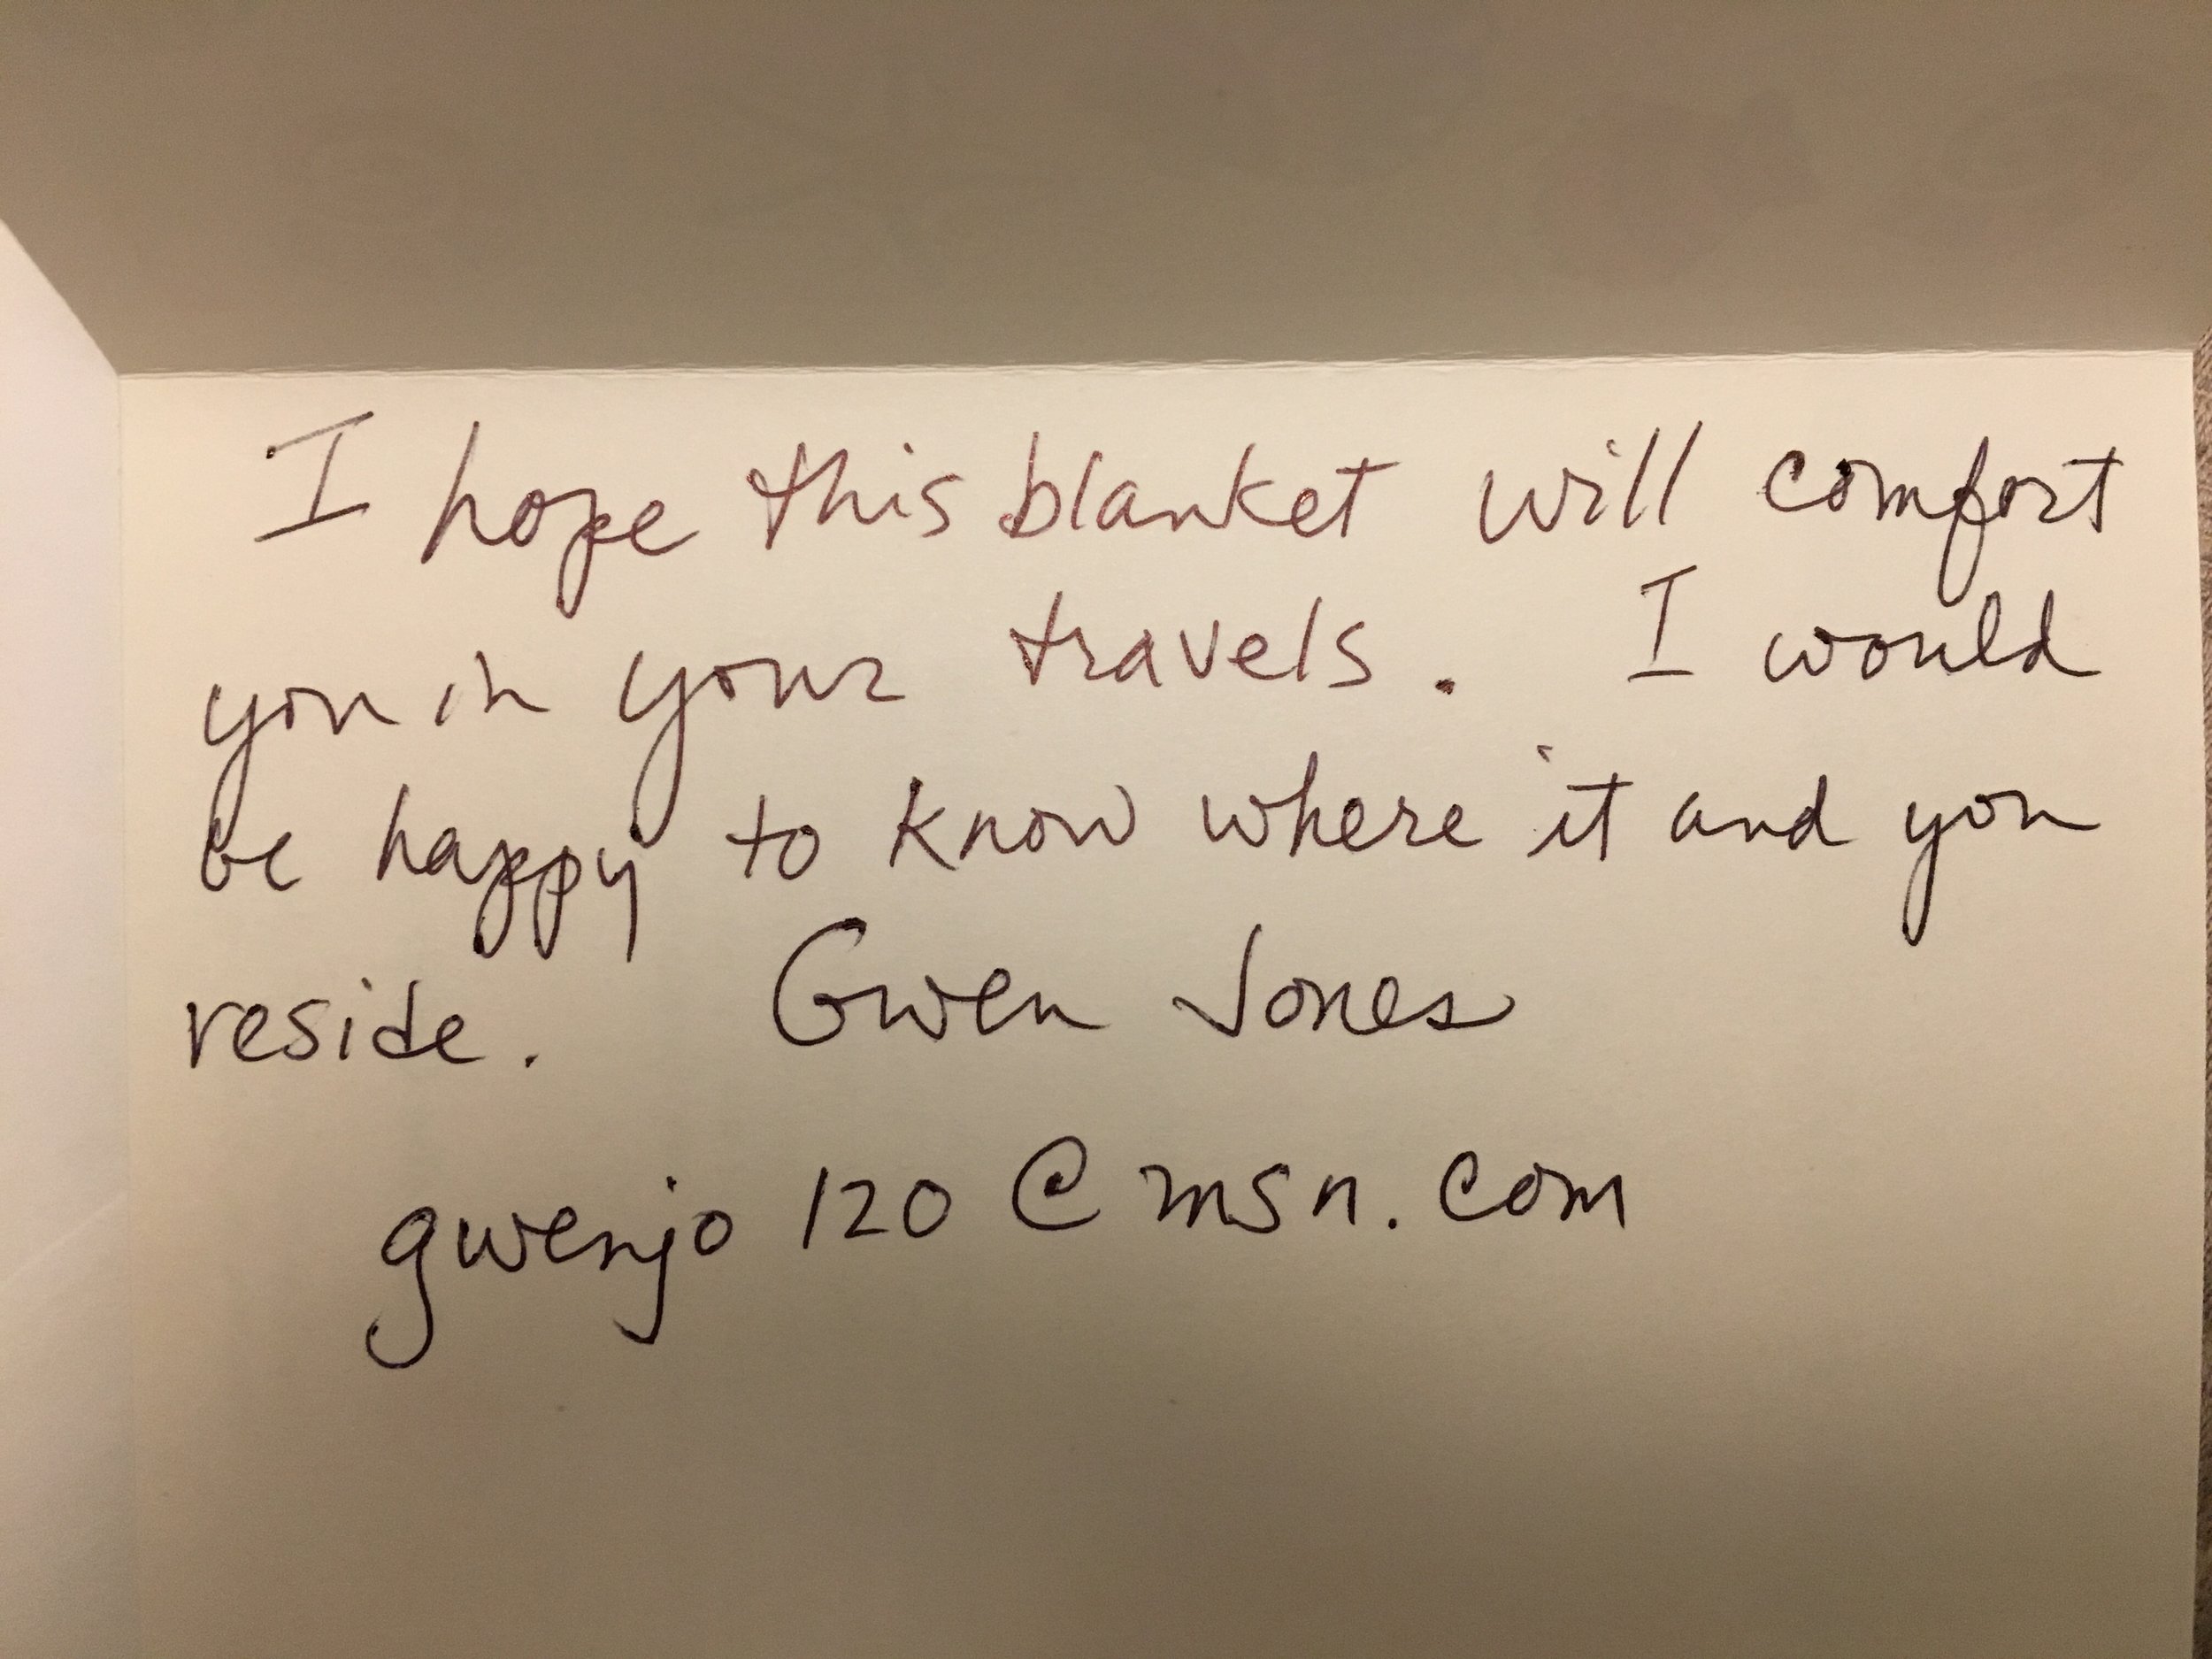 I hope this blanket will comfort
you in your travels. I would
be happy to know where it and you
reside. Gwen Jones
gwenjo120@msn.com